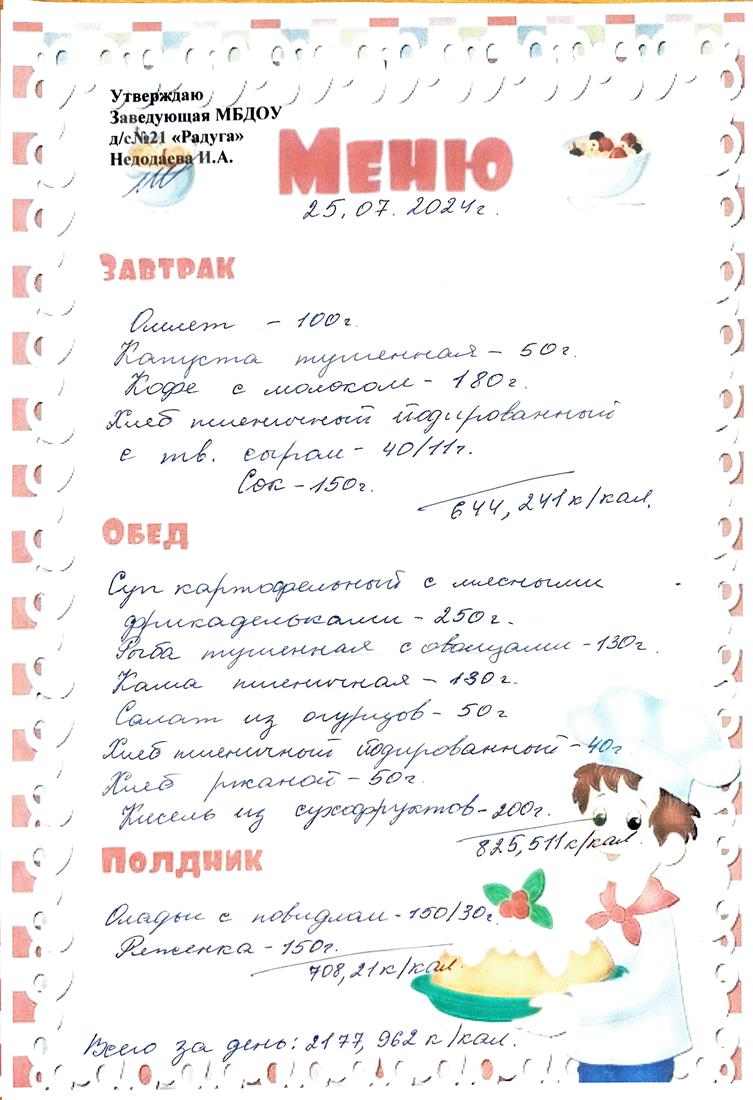 Утверждаю
Заведующая МБДОУ
д/с№21 «Радуга»
Недодаева И.А.
Меню
25.07.2024г.
Завтрак
Омлет - 100г.
Капуста тушенная - 50г.
Кофе с молоком - 180г.
Хлеб пшеничный йодированный
с тв. сыром - 40/11г.
Сок - 150г.
644,241к/кал.
Обед
Суп картофельный с мясными
фрикадельками - 250г.
Рыба тушенная с овощами - 130г.
Каша пшеничная - 130г.
Салат из огурцов - 50г
Хлеб пшеничный йодированный - 40г.
Хлеб ржаной - 50г.
Кисель из сухофруктов - 200г.
825,511к/кал.
Полдник
Оладьи с повидлом - 150/30г.
Ряженка - 150г.
708,21к/кал.
Всего за день: 2177,962 к/кал.